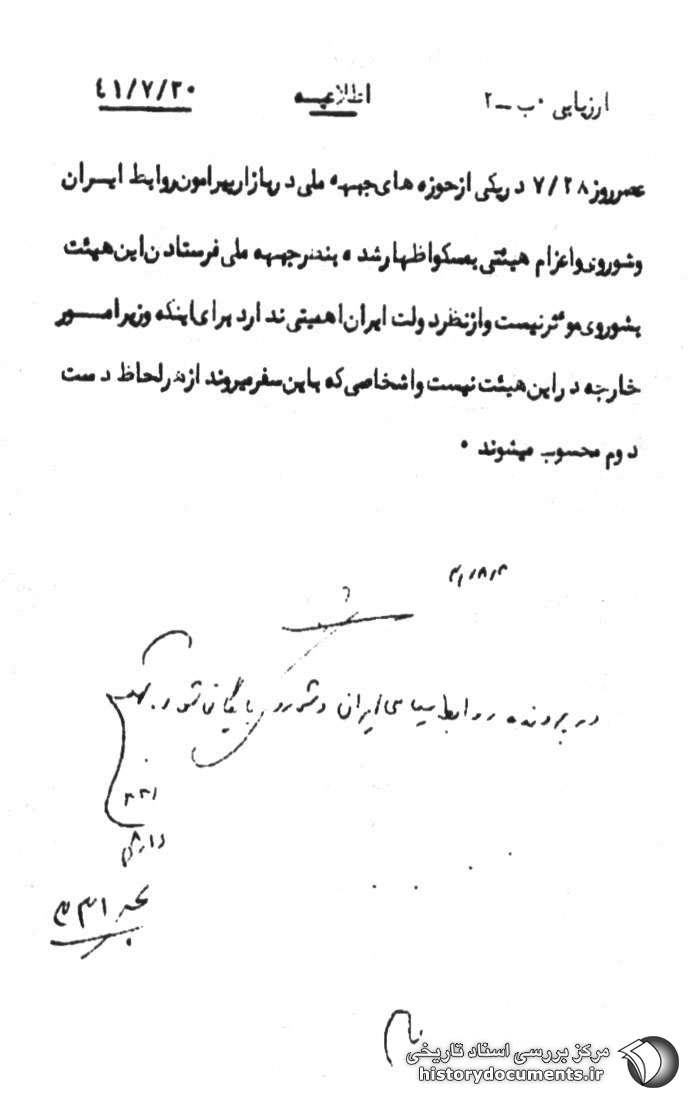 ارزیابی ۰ب ــ۲
اطلاعیه
٤١/٧/٣٠
عصرروز ٧/٢٨ دریکی ازحوزه های جبهه ملی دربازارپیرامون روابط ایران
وشوروی واعزام هیئتی بمسکواظهارشد ه بنظرجبهه ملی فرستادن این هیئت
بشوروی موثرنیست وازنظردولت ایران اهمیتی ندارد برای اینکه وزیرامور
خارجه دراین هیئت نیست واشخاصی که باین سفرمیروند ازهرلحاظ دست
دوم محسوب میشوند ۰
٤١/٨/٣
در پرونده روابط سیاسی ایران و شوروی بایگانی شود
٣٣١
مرکز بررسی اسناد تاریخی
historydocuments.ir